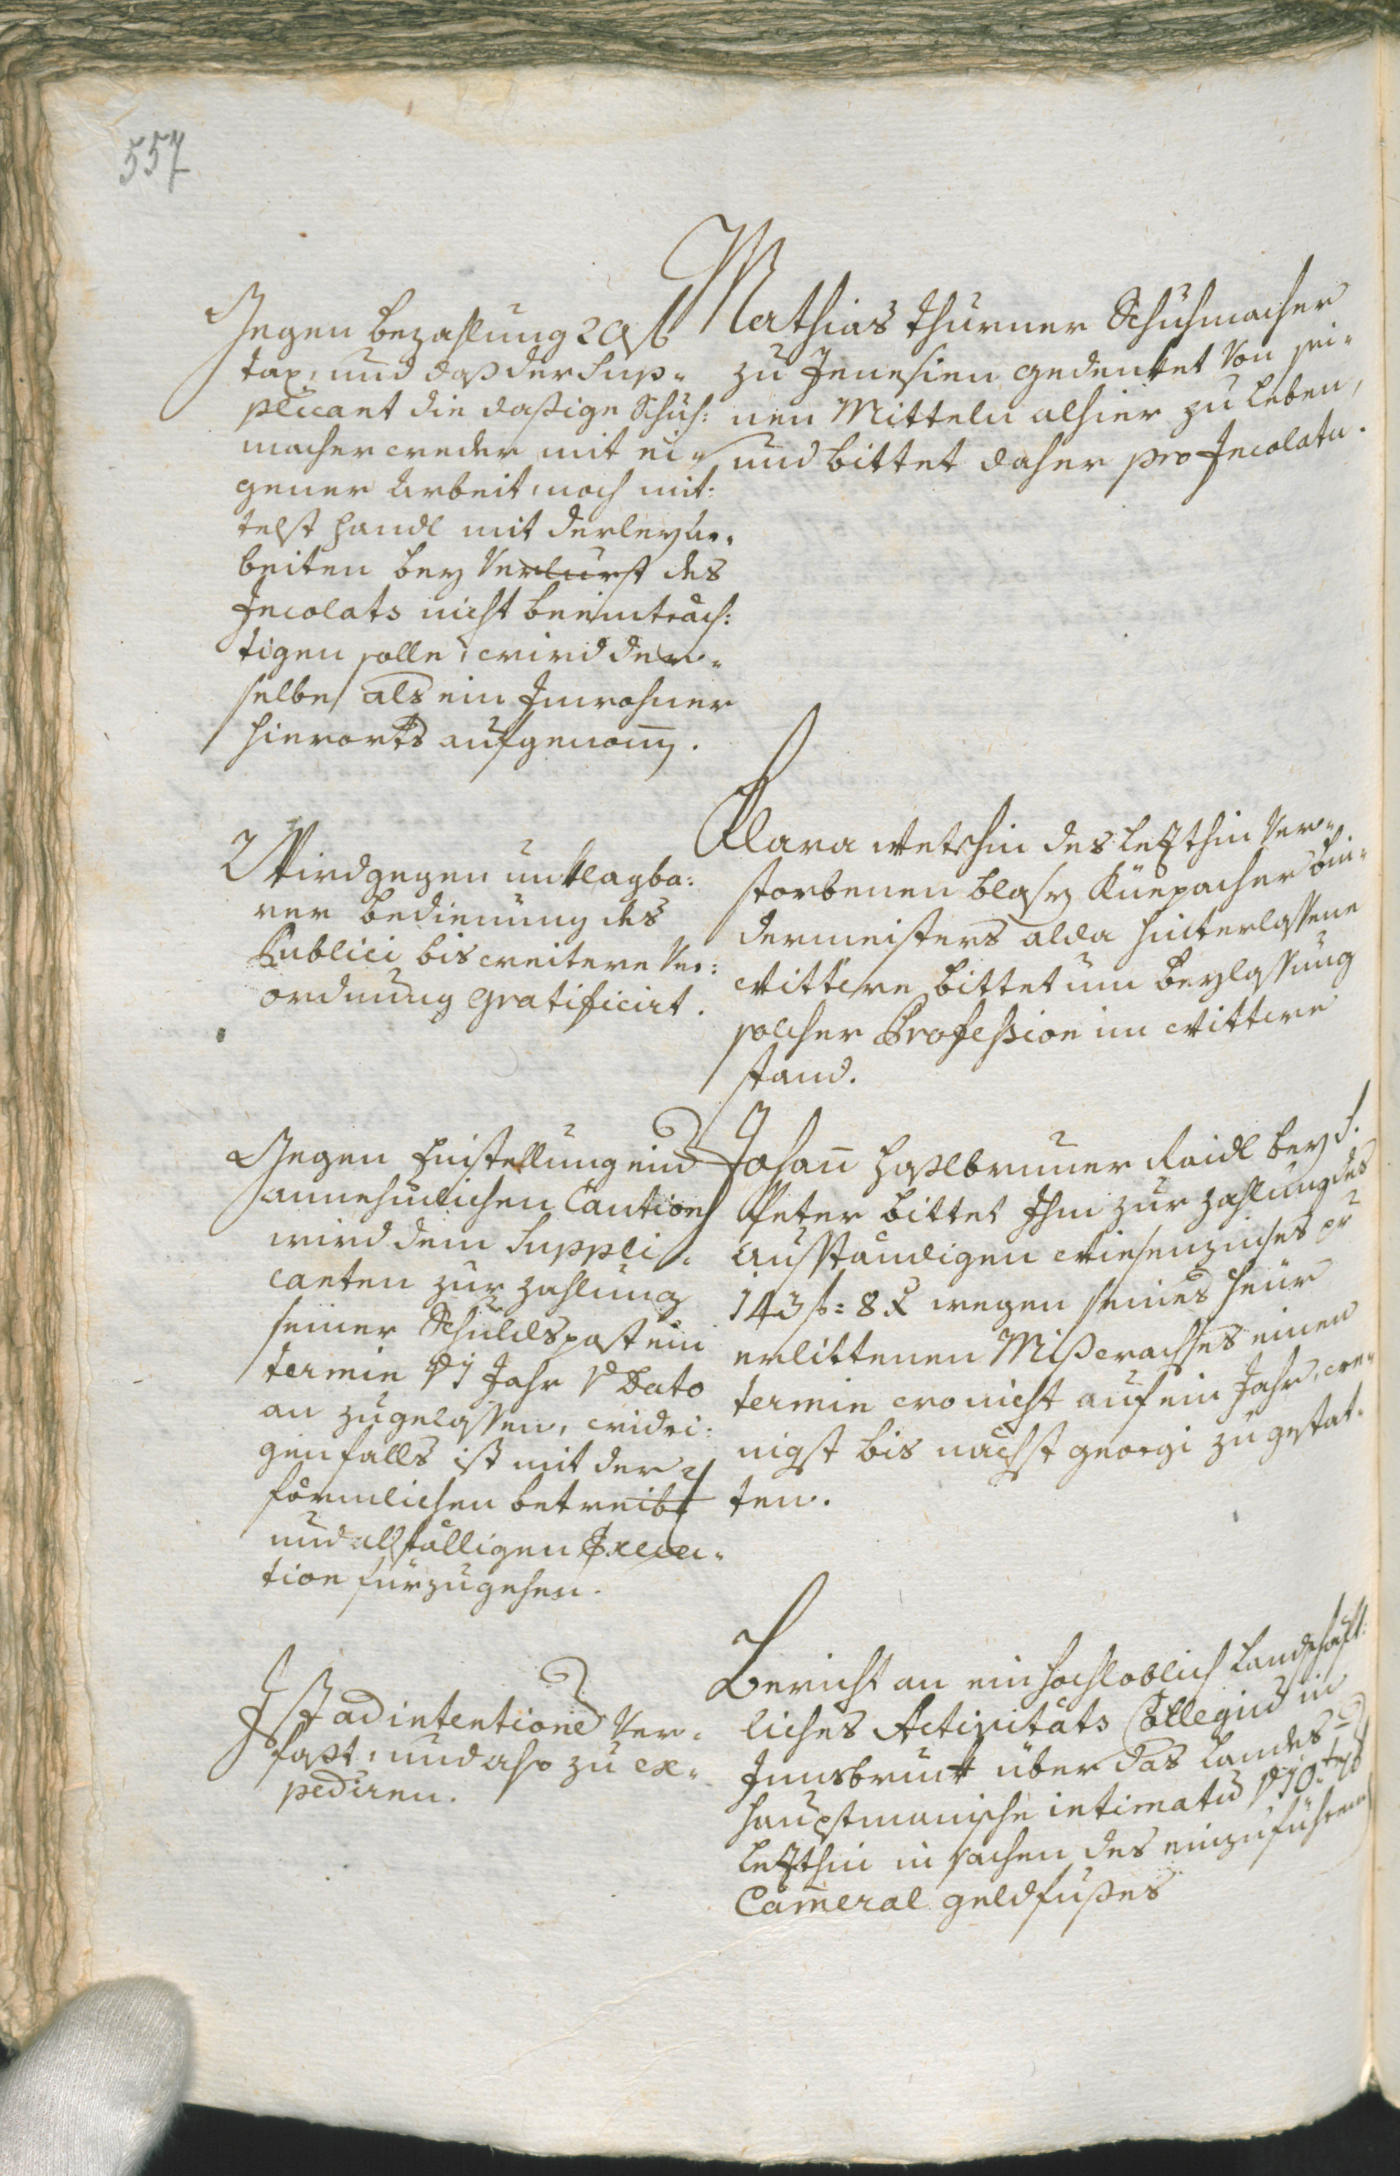 557
Mathias Thurner Schuhmacher
zu Jenesien gedenket von sei-
nen Mitteln alhier zu leben,
und bittet daher pro Incolatu.
Gegen Bezahlung
tax, und daß der Sup-
plicant die dasige Schuh:
macher weder mit ei-
gener Arbeit, noch mit:
telst Handl mit derley Ar-
beiten bey Verlurst des
Incolats nicht beeinträch:
tigen solle, wird der-
selbe als ein Inwohner
hierorts aufgenom̅.
Klara Wetschin des lezthin ver-
storbenen Blasy Küepacher Bin-
dermeisters alda hinterlassene
Wittwe bittet um Beylassung
solcher Profeßion im Wittwe
stand.
Wird gegen unklagba:
rer Bedienung des
Publici bis weitere Ver:
ordnung gratificirt.
Johan̅ Haßlbruner Raidl bey S.
Peter bittet Ihm zur Zahlung des
Ausständigen Wiesenzinses pr
143 f: 8 x wegen seines heür
erlittenen Mißwachses einen
termin wo nicht auf ein Jahr, we-
nigst bis nächst georgi zu gestat-
ten.
Gegen Einstellung ein
annehmlichen Caution
wird dem Suppli-
canten zur Zahlung
seiner Schuldspost ein
termin 1 Jahr Dato
an zugelassen, widri:
genfalls ist mit der
förmlichen betreib
und allfälligen Execu-
tion fürzugehen.
Bericht an ein hochloblich Landschaft:
liches Activitäts Collegiu̅ in
Innsbruck über das Landes
hauptmanische intimatu̅ 10
lezthin in sachen des einzuführen
Cam̅eral geldfußes
Ist ad intentione̅ ver-
fast, und also zu ex-
pediren.